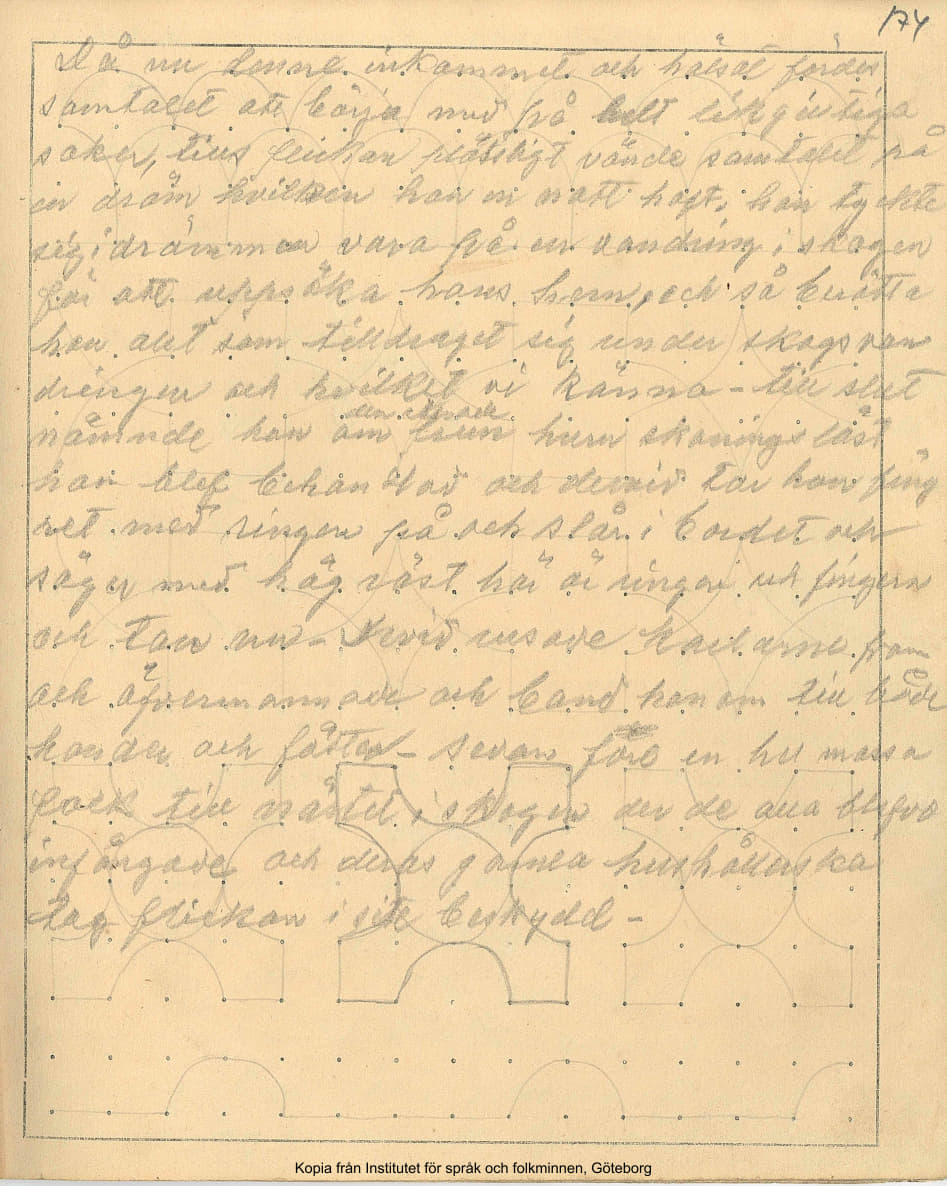 174
Då nu denne inkommit och hälsat fördes
samtalet att börja med på helt likgiltiga
saker, tills flickan plötsligt vände samtalet på
en dröm hvilken hon en natt haft, hon tyckte
sig i drömmen vara på en vandring i skogen
för att uppsöka hans hem, och så berätta
hon alt som tilldraget sig under skogsvan
dringen och hvilket vi känna – till slut
nämnde hon om huru skoningslöst
hon blef behandlad och dervid tar hon fing
ret med ringen på och slår i bordet och
säger med hög röst här är ringen och fingern
och tan nu – Dervid rusade karlarne fram
och öfvermannade och band honom till både
händer och fötter – sedan före en hel massa
folk till nästet i skogen der de alla blefvo
infångade och deras gamla hushållerska
tag flickan i sitt beskydd –
Kopia från Institutet för språk och folkminnen, Göteborg